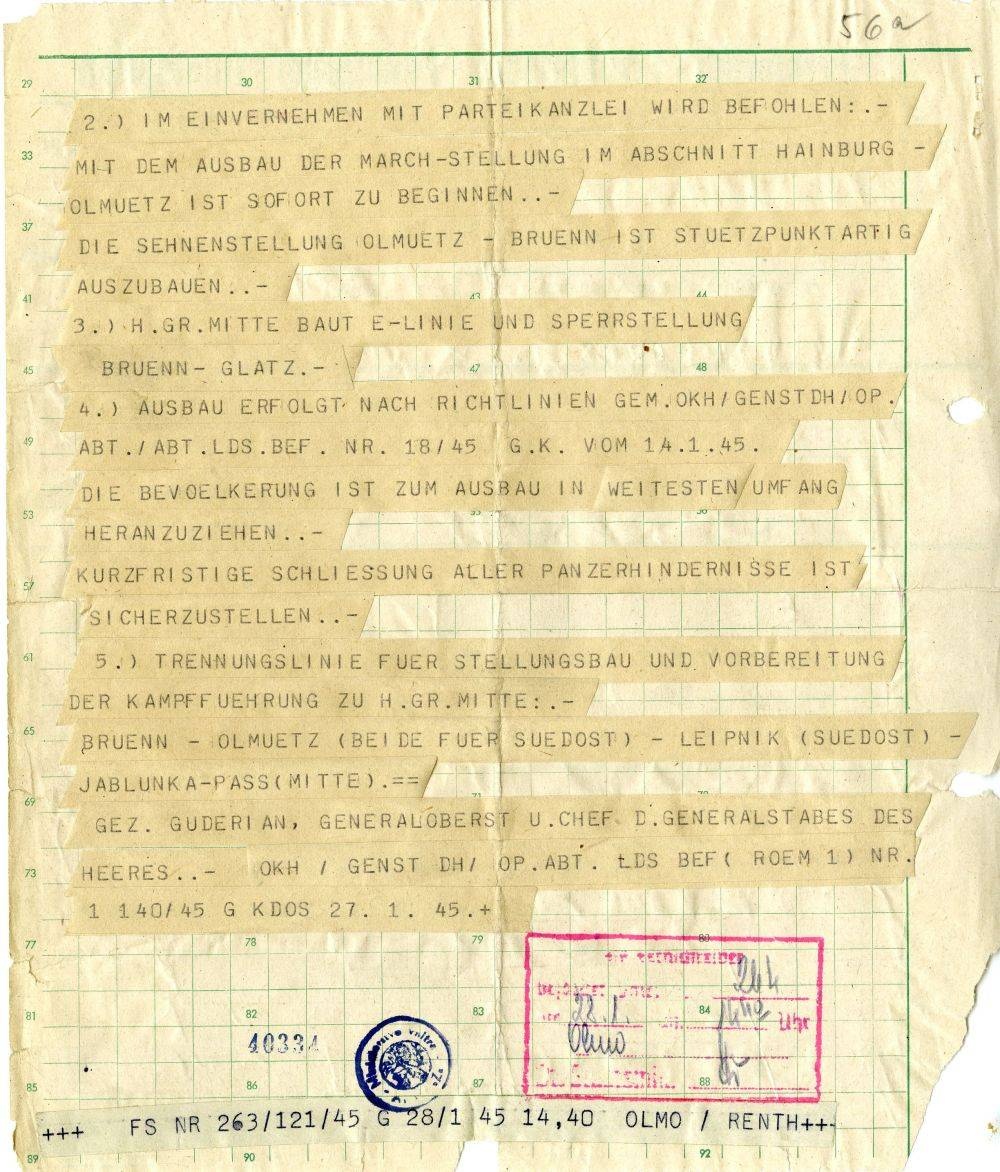 56a
29 30 31 32
2.) IM EINVERNEHMEN MIT PARTEIKANZLEI WIRD BEFOHLEN:.-
33
MIT DEM AUSBAU DER MARCH-STELLUNG IM ABSCHNITT HAINBURG -
OLMUETZ IST SOFORT ZU BEGINNEN..-
37
DIE SEHNENSTELLUNG OLMUETZ - BRUENN IST STUETZPUNKTARTIG
AUSZUBAUEN..-
41 43 44
3.) H.GR.MITTE BAUT E-LINIE UND SPERRSTELLUNG
45 BRUENN- GLATZ.- 47 48
4.) AUSBAU ERFOLGT NACH RICHTLINIEN GEM.OKH/GENSTDH/OP.
49
ABT./ABT.LDS.BEF. NR. 18/45 G.K. VOM 14.1.45.
DIE BEVOELKERUNG IST ZUM AUSBAU IN WEITESTEN UMFANG
53 55 56
HERANZUZIEHEN..-
KURZFRISTIGE SCHLIESSUNG ALLER PANZERHINDERNISSE IST
57
SICHERZUSTELLEN..-
61
5.) TRENNUNGSLINIE FUER STELLUNGSBAU UND VORBEREITUNG
DER KAMPFFUEHRUNG ZU H.GR.MITTE:.-
65
BRUENN - OLMUETZ (BEIDE FUER SUEDOST) - LEIPNIK (SUEDOST) -
JABLUNKA-PASS(MITTE).==
69 71
GEZ. GUDERIAN, GENERALOBERST U.CHEF D.GENERALSTABES DES
73 HEERES..- OKH / GENST DH/ OP.ABT. LDS BEF( ROEM 1) NR.
1 140/45 G KDOS 27. 1. 45.+
77 78 79 80
81 82 83 84
28.1. Uhr
40334
85 86 87 88
+++ FS NR 263/121/45 G 28/1 45 14,40 OLMO / RENTH++-
89 90 92